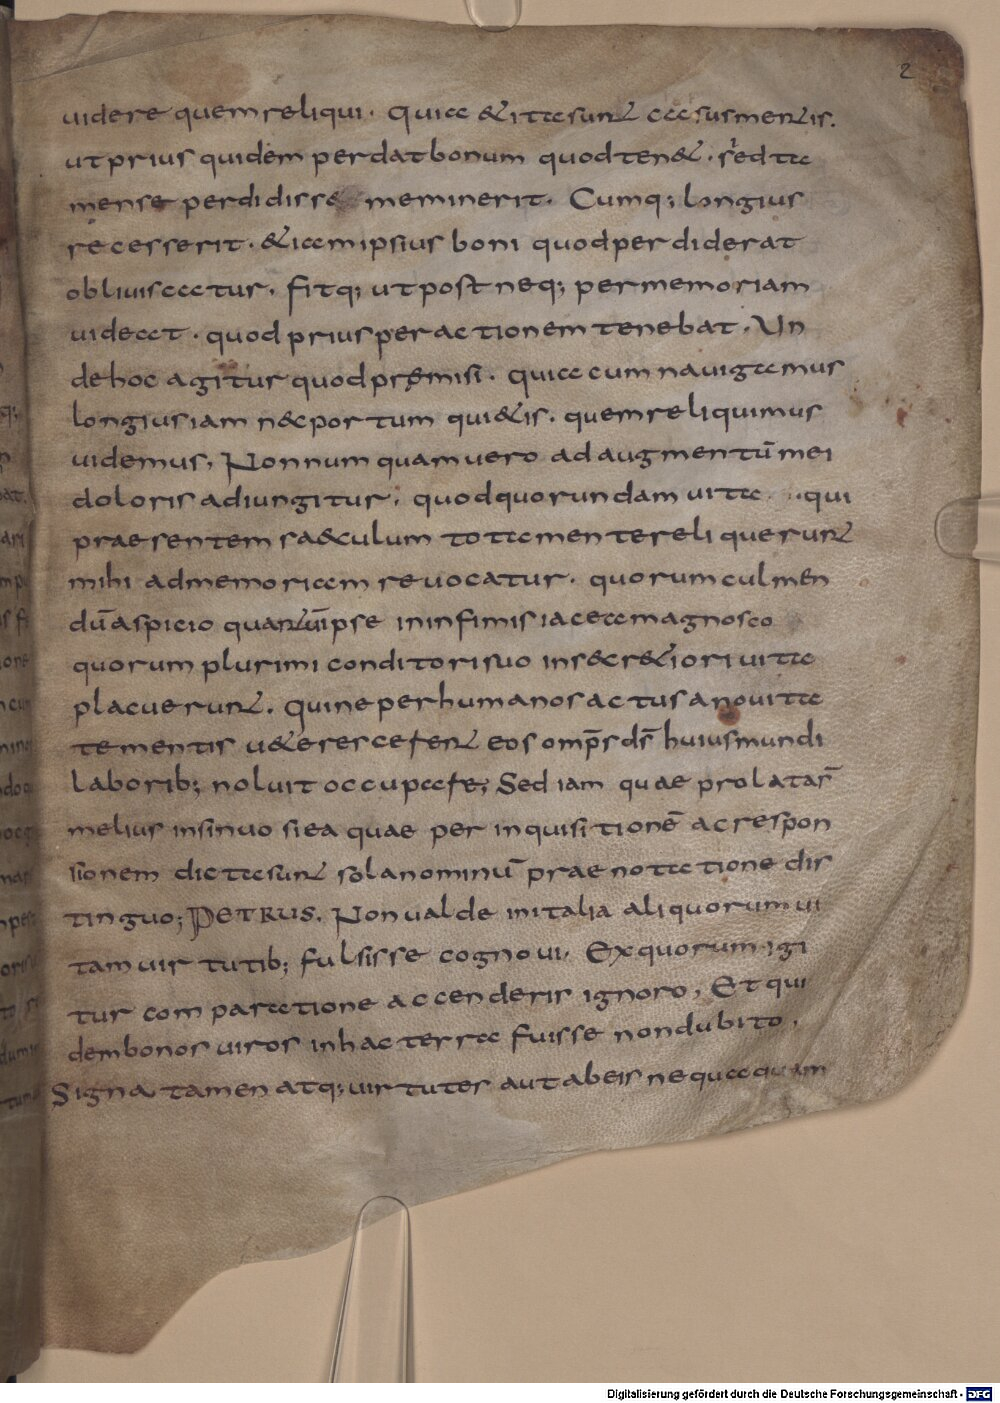 2
uidere quem reliqui. Quia & ita sunt casus mentis.
ut prius quidem perdat bonum quod ten&. sed ta
mense perdidisse meminerit. Cumq; longius
recesserit. & iam ipsius boni quod perdiderat
obliuiscatur. fitq; ut post neq; per memoriam
uideat. quod prius per actionem tenebat. Un
de hoc agitur quod premisi. quia cum nauigamus
longius iam nec portum qui&is. quem reliquimus
uidemus, Non numquam uero ad augmentū mei
doloris adiungitur. quod quorundam uita qui
praesentem saeculum tota mente reliquerunt
mihi ad memoriam reuocatur. quorum culmen
dū aspicio ipse in infimis iacea magnosco
quorum plurimi conditori suo in secr&iori uita
placuerunt. Qui ne per humanos actus a nouita
te mentis u&erescerent eos omps ds huius mundi
laborib; noluit occupare; Sed iam quae prolata s̄
melius insinuo si ea quae per inquisitionē ac respon
sionem dicta sunt sola nominū praenotatione dis
tinguo; PETRUS. Non ualde in italia aliquorum ui
tam uirtutib; fulsisse cognoui. Ex quorum igi
tur comparatione accenderis ignoro, Et qui
dem bonos uiros in hac terra fuisse non dubito,
Signa tamen atq; uirtutes aut ab eis nequaquam
Digitalisierung gefördert durch die Deutsche Forschungsgemeinschaft - DFG